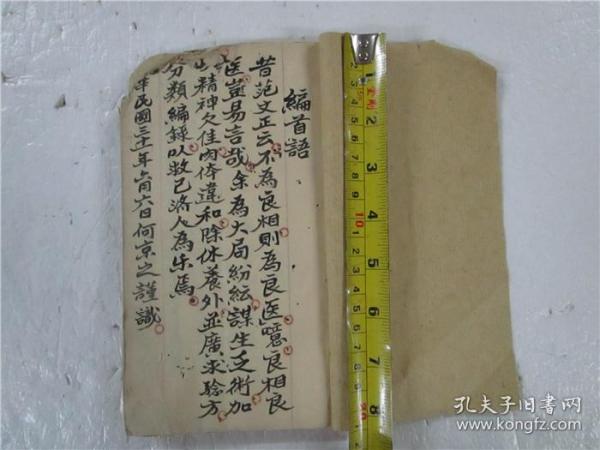 編首語
昔范文正云不為良相則為良医噫良相良
医豈易言哉余為大局紛紜謀生乏術加
精神欠佳肉体違和除休養外並廣求驗方
分類編錄以救己済人為樂焉
華民國三十年六月六日何京之謹識
孔夫子旧書网
www.kongfz.com